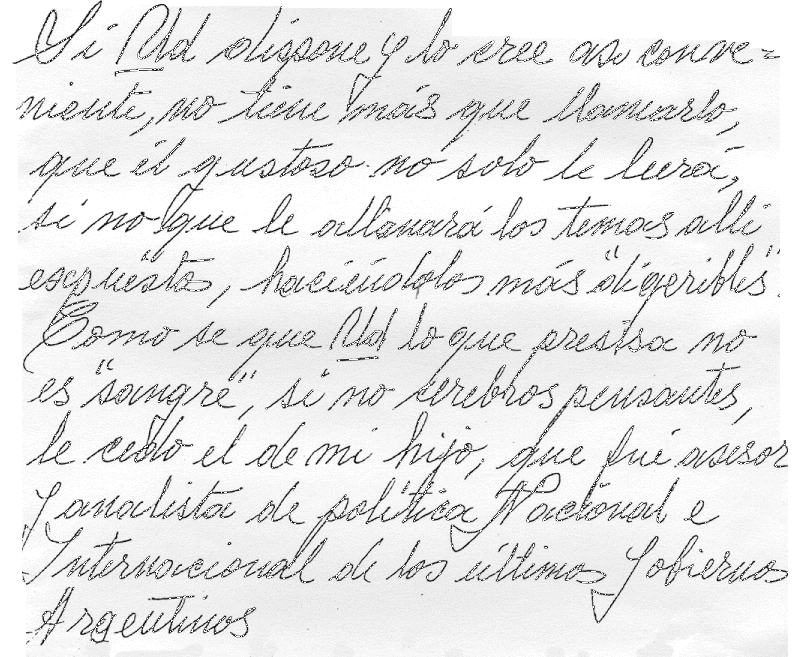 Si Ud dispone y lo cree asi conve=
niente, no tiene más que llamarlo,
que él gustoso no solo le leerá,
si no que le allanará los temas alli
expuesto, haciéndolos más "digeribles".
Como se que Ud lo que precisa no
es "sangre", si no cerebros pensantes,
le cedo el de mi hijo, que fué asesor
y analista de política Nacional e
Internacional de los últimos Gobiernos
Argentinos